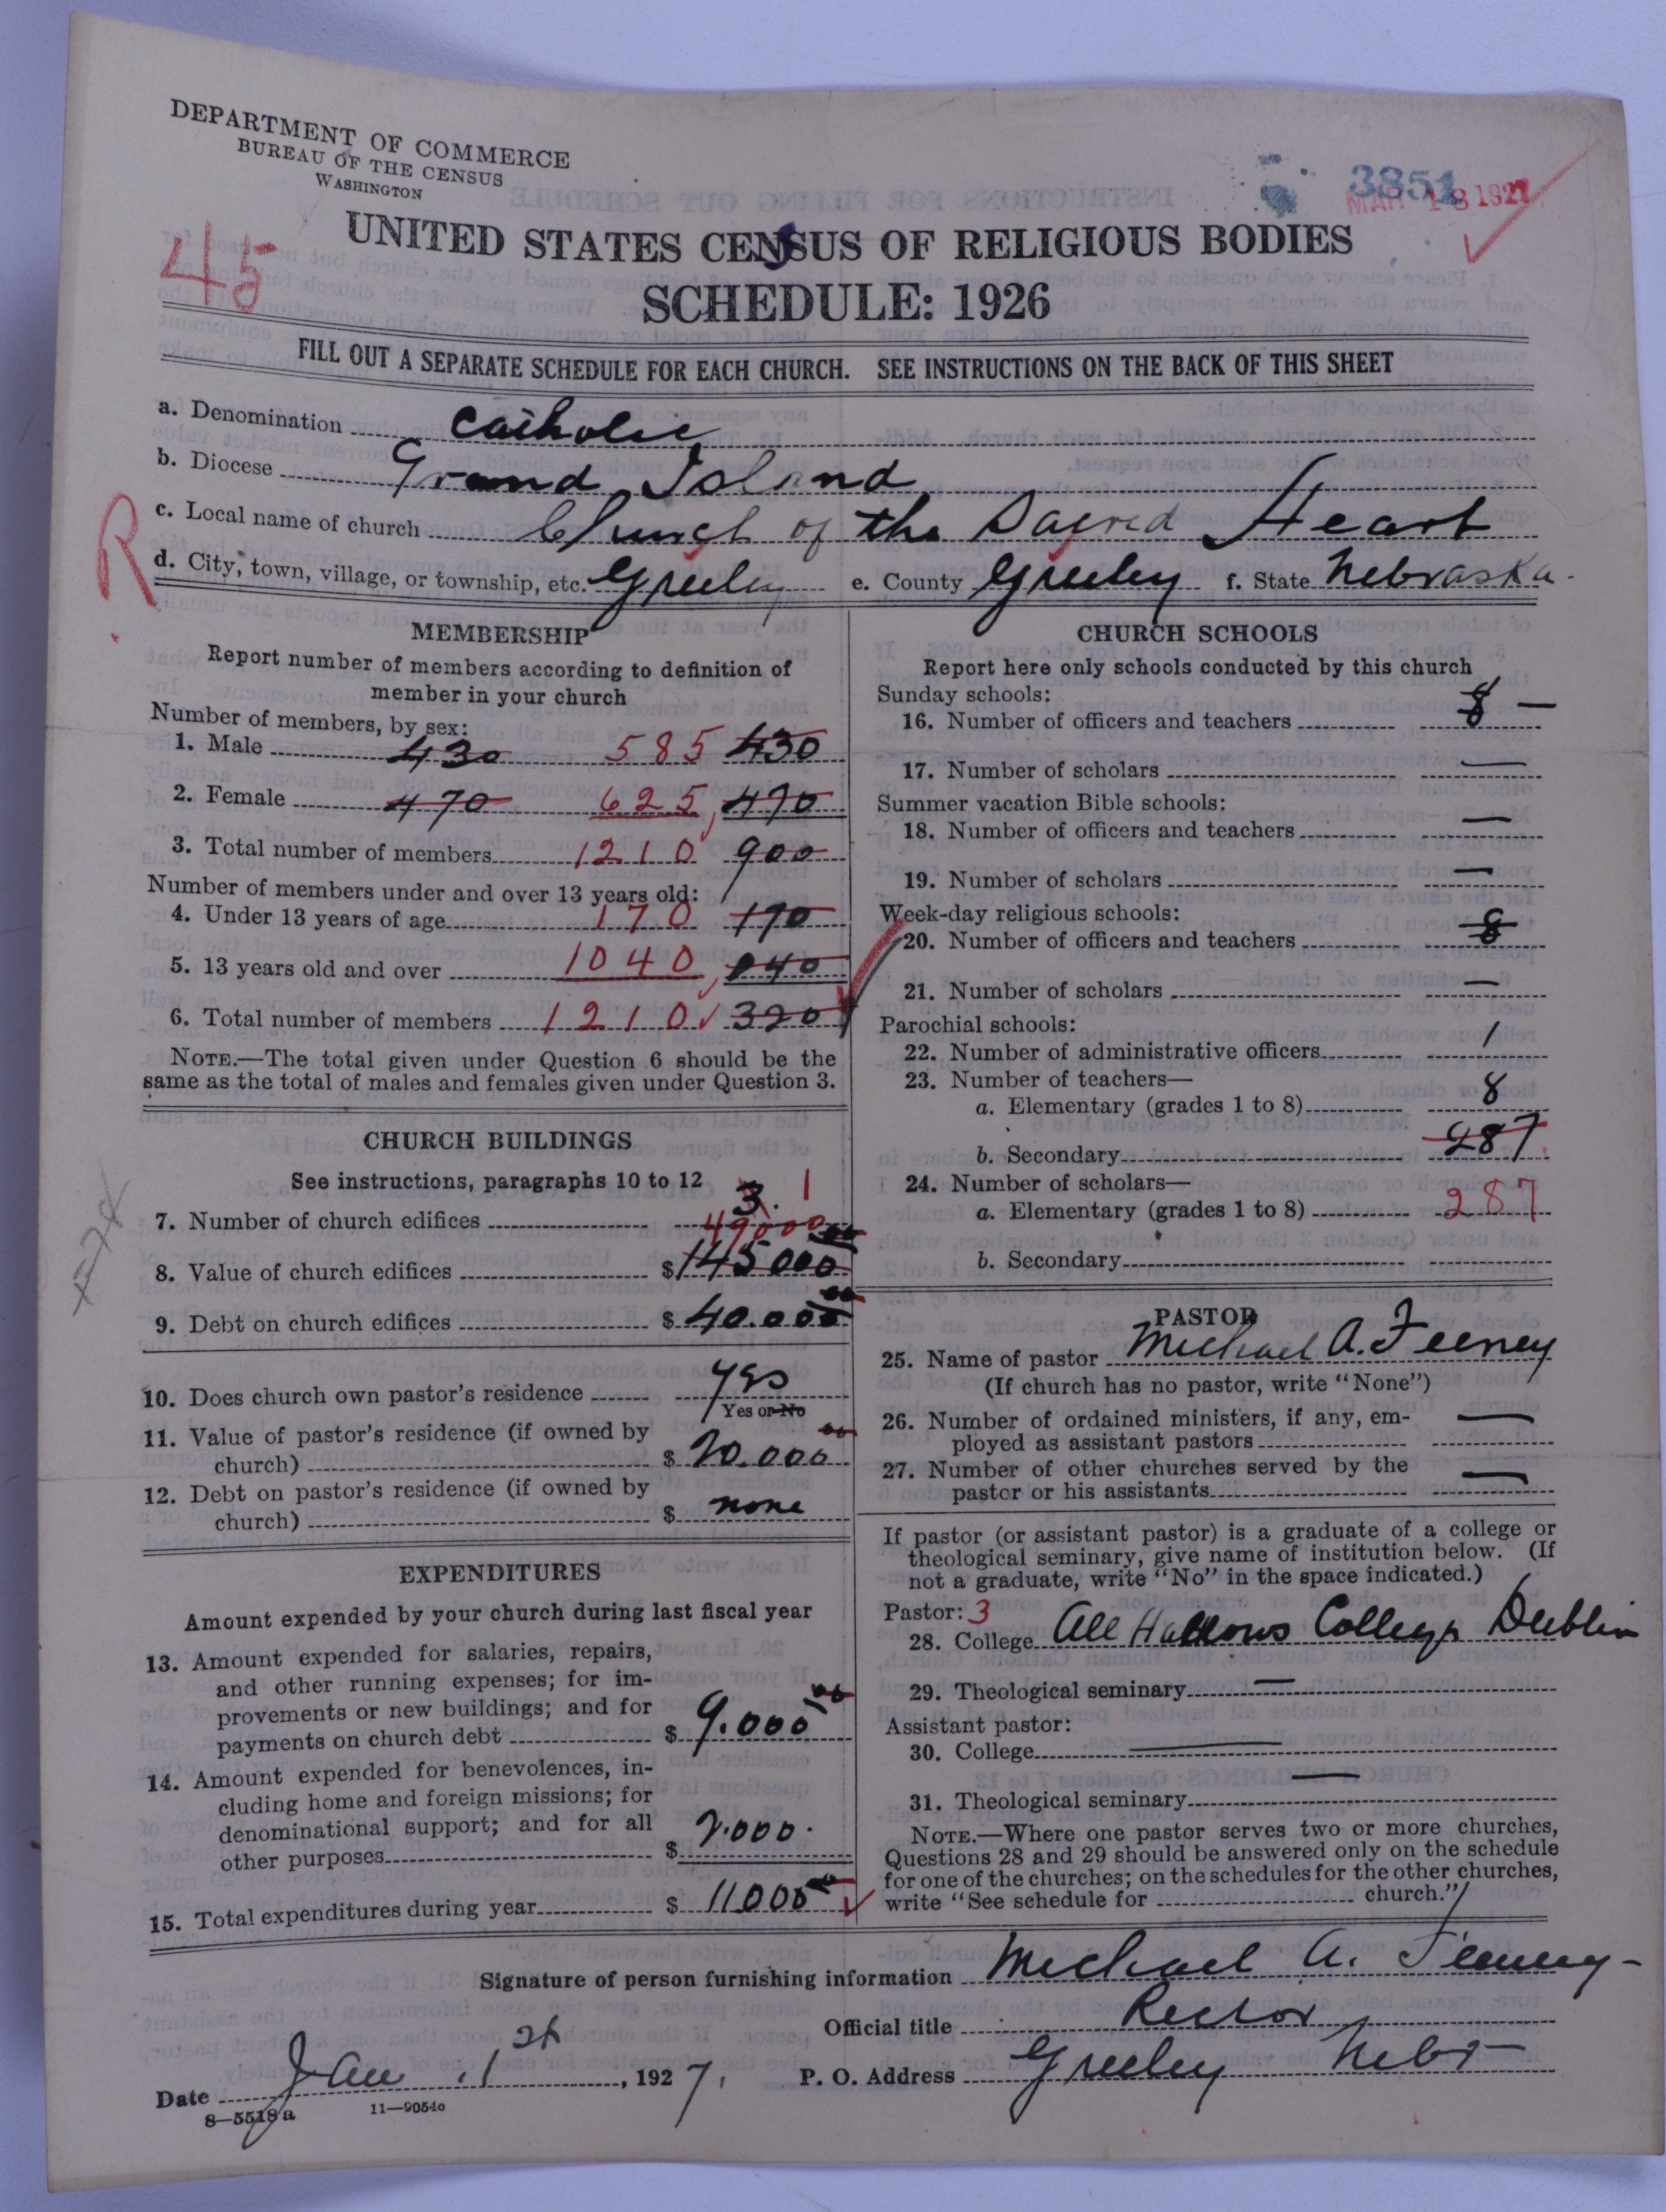 DEPARTMENT OF COMMERCE
BUREAU OF THE CENSUS
WASHINGTON
3851
MAR 18 1927
45
UNITED STATES CENSUS OF RELIGIOUS BODIES
SCHEDULE: 1926
FILL OUT A SEPARATE SCHEDULE FOR EACH CHURCH. SEE INSTRUCTIONS ON THE BACK OF THIS SHEET
a. Denomination Catholic
b. Diocese Grand Island
c. Local name of church Church of the Sacred Heart
R
d. City, town, village, or township, etc. Greeley e. County Greeley f. State Nebraska
MEMBERSHIP
Report number of members according to definition of
member in your church
Number of members, by sex:
1. Male 430 585 430
2. Female 470 625 470
3. Total number of members 1210 900
Number of members under and over 13 years old:
4. Under 13 years of age 170 170
5. 13 years old and over 1040 040
6. Total number of members 1210 320
NOTE.—The total given under Question 6 should be the
same as the total of males and females given under Question 3.
CHURCH BUILDINGS
See instructions, paragraphs 10 to 12
7. Number of church edifices 3. 1
49000
8. Value of church edifices $145000 00
9. Debt on church edifices $40.000 00
10. Does church own pastor's residence yes
Yes or No
11. Value of pastor's residence (if owned by
church) $20.000 00
12. Debt on pastor's residence (if owned by
church) $ none
EXPENDITURES
Amount expended by your church during last fiscal year
13. Amount expended for salaries, repairs,
and other running expenses; for im-
provements or new buildings; and for
payments on church debt $9.000 00
14. Amount expended for benevolences, in-
cluding home and foreign missions; for
denominational support; and for all
other purposes $2.000.
15. Total expenditures during year $11000 00
CHURCH SCHOOLS
Report here only schools conducted by this church
Sunday schools:
16. Number of officers and teachers 8 —
17. Number of scholars —
Summer vacation Bible schools:
18. Number of officers and teachers —
19. Number of scholars —
Week-day religious schools:
20. Number of officers and teachers 8
21. Number of scholars —
Parochial schools:
22. Number of administrative officers 1
23. Number of teachers—
a. Elementary (grades 1 to 8) 8
b. Secondary 287
24. Number of scholars—
a. Elementary (grades 1 to 8) 287
b. Secondary
PASTOR
25. Name of pastor Michael A. Feeney
(If church has no pastor, write "None")
26. Number of ordained ministers, if any, em-
ployed as assistant pastors —
27. Number of other churches served by the
pastor or his assistants —
If pastor (or assistant pastor) is a graduate of a college or
theological seminary, give name of institution below. (If
not a graduate, write "No" in the space indicated.)
Pastor: 3
28. College All Hallows College Dublin
29. Theological seminary —
Assistant pastor:
30. College —
31. Theological seminary —
NOTE.—Where one pastor serves two or more churches,
Questions 28 and 29 should be answered only on the schedule
for one of the churches; on the schedules for the other churches,
write "See schedule for church."
Signature of person furnishing information Michael A. Feeney
Official title Rector
Date Jan. 1st, 1927. P. O. Address Greeley Nebr
8—5518a 11—9054o